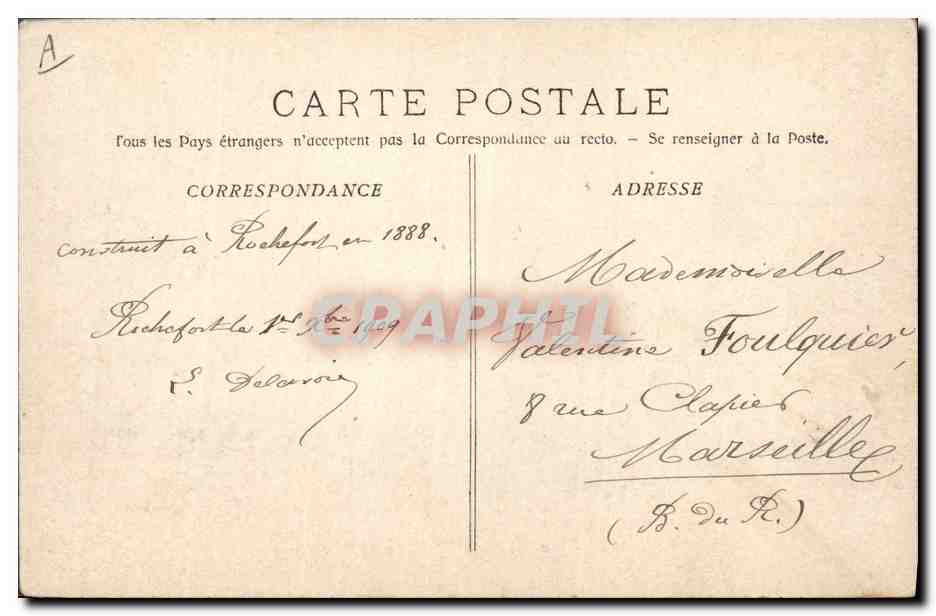 A
CARTE POSTALE
Tous les Pays étrangers n'acceptent pas la Correspondance au recto. – Se renseigner à la Poste.
CORRESPONDANCE
construit à Rochefort en 1888.
Rochefort le 1er Xbre 1909
ADRESSE
Mademoiselle
Valentine Foulquier,
8 rue Clapier
Marseille
(B. du R.)
CPAPHIL